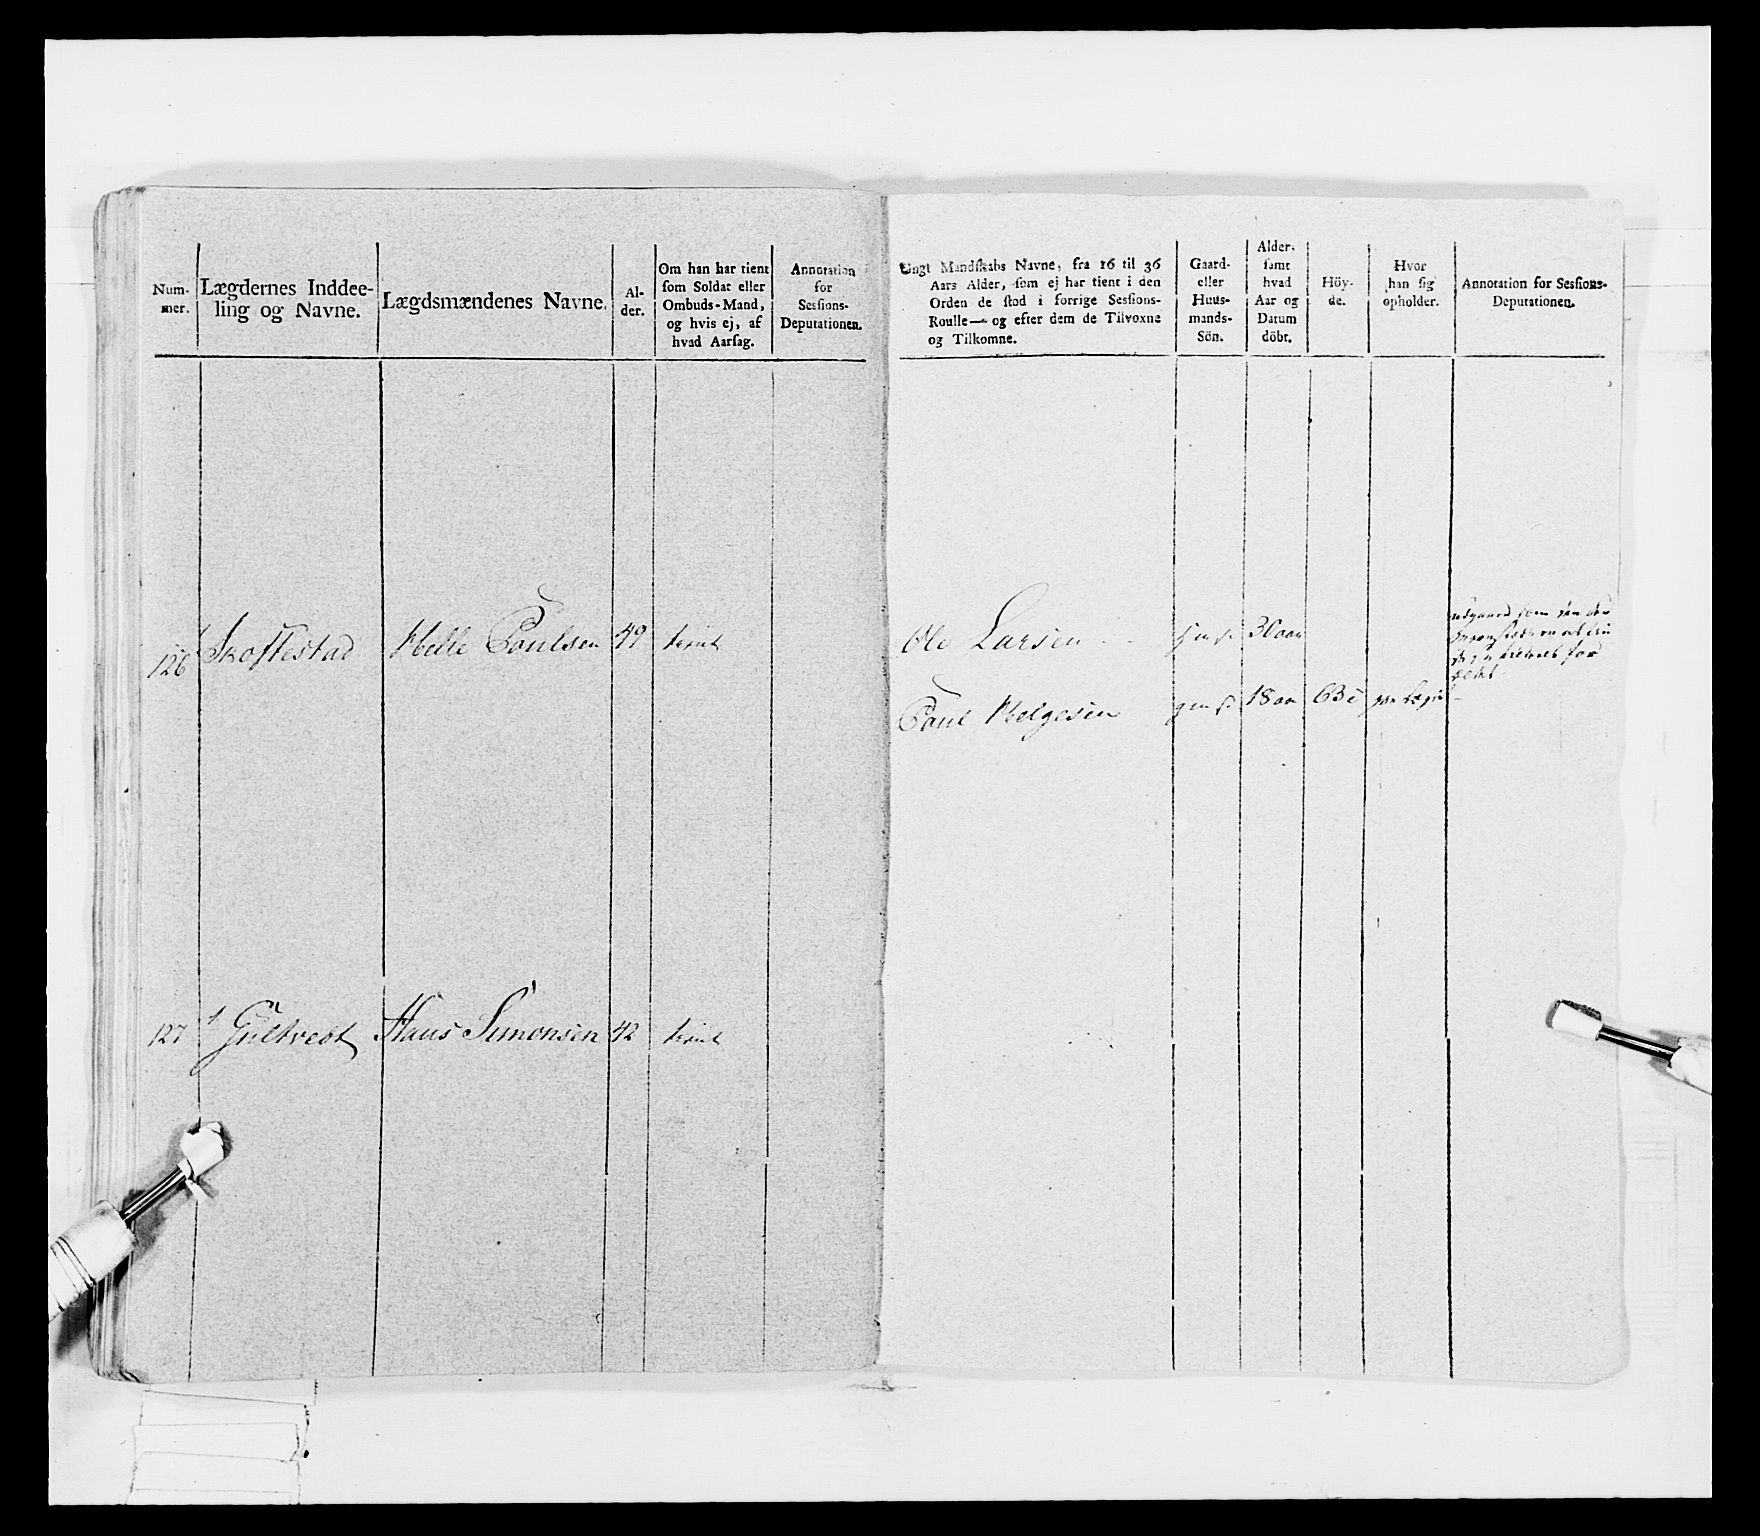 Num-
mer.
Lægdernes Inddee-
ling og Navne.
Lægdsmændenes Navne.
Al-
der.
Om han har tient
som Soldat eller
Ombuds-Mand,
og hvis ej, af
hvad Aarsag.
Annotation
for
Sessions-
Deputationen.
126 Skoftestad Helle Poulsen 49 tient
127 Hans Simonsen 42 tient
Ungt Mandskabs Navne, fra 16 til 36
Aars Alder, som ej har tient i den
Orden de stod i forrige Sessions-
Roulle— og efter dem de Tilvoxne
og Tilkomne.
Gaard-
eller
Huus-
mands-
Sön.
Alder,
samt
hvad
Aar og
Datum
döbt.
Höy-
de.
Hvor
han sig
opholder.
Annotation for Sessions-
Deputationen.
Ole Larsen 30 aar
Paul Helgesen 18 aar